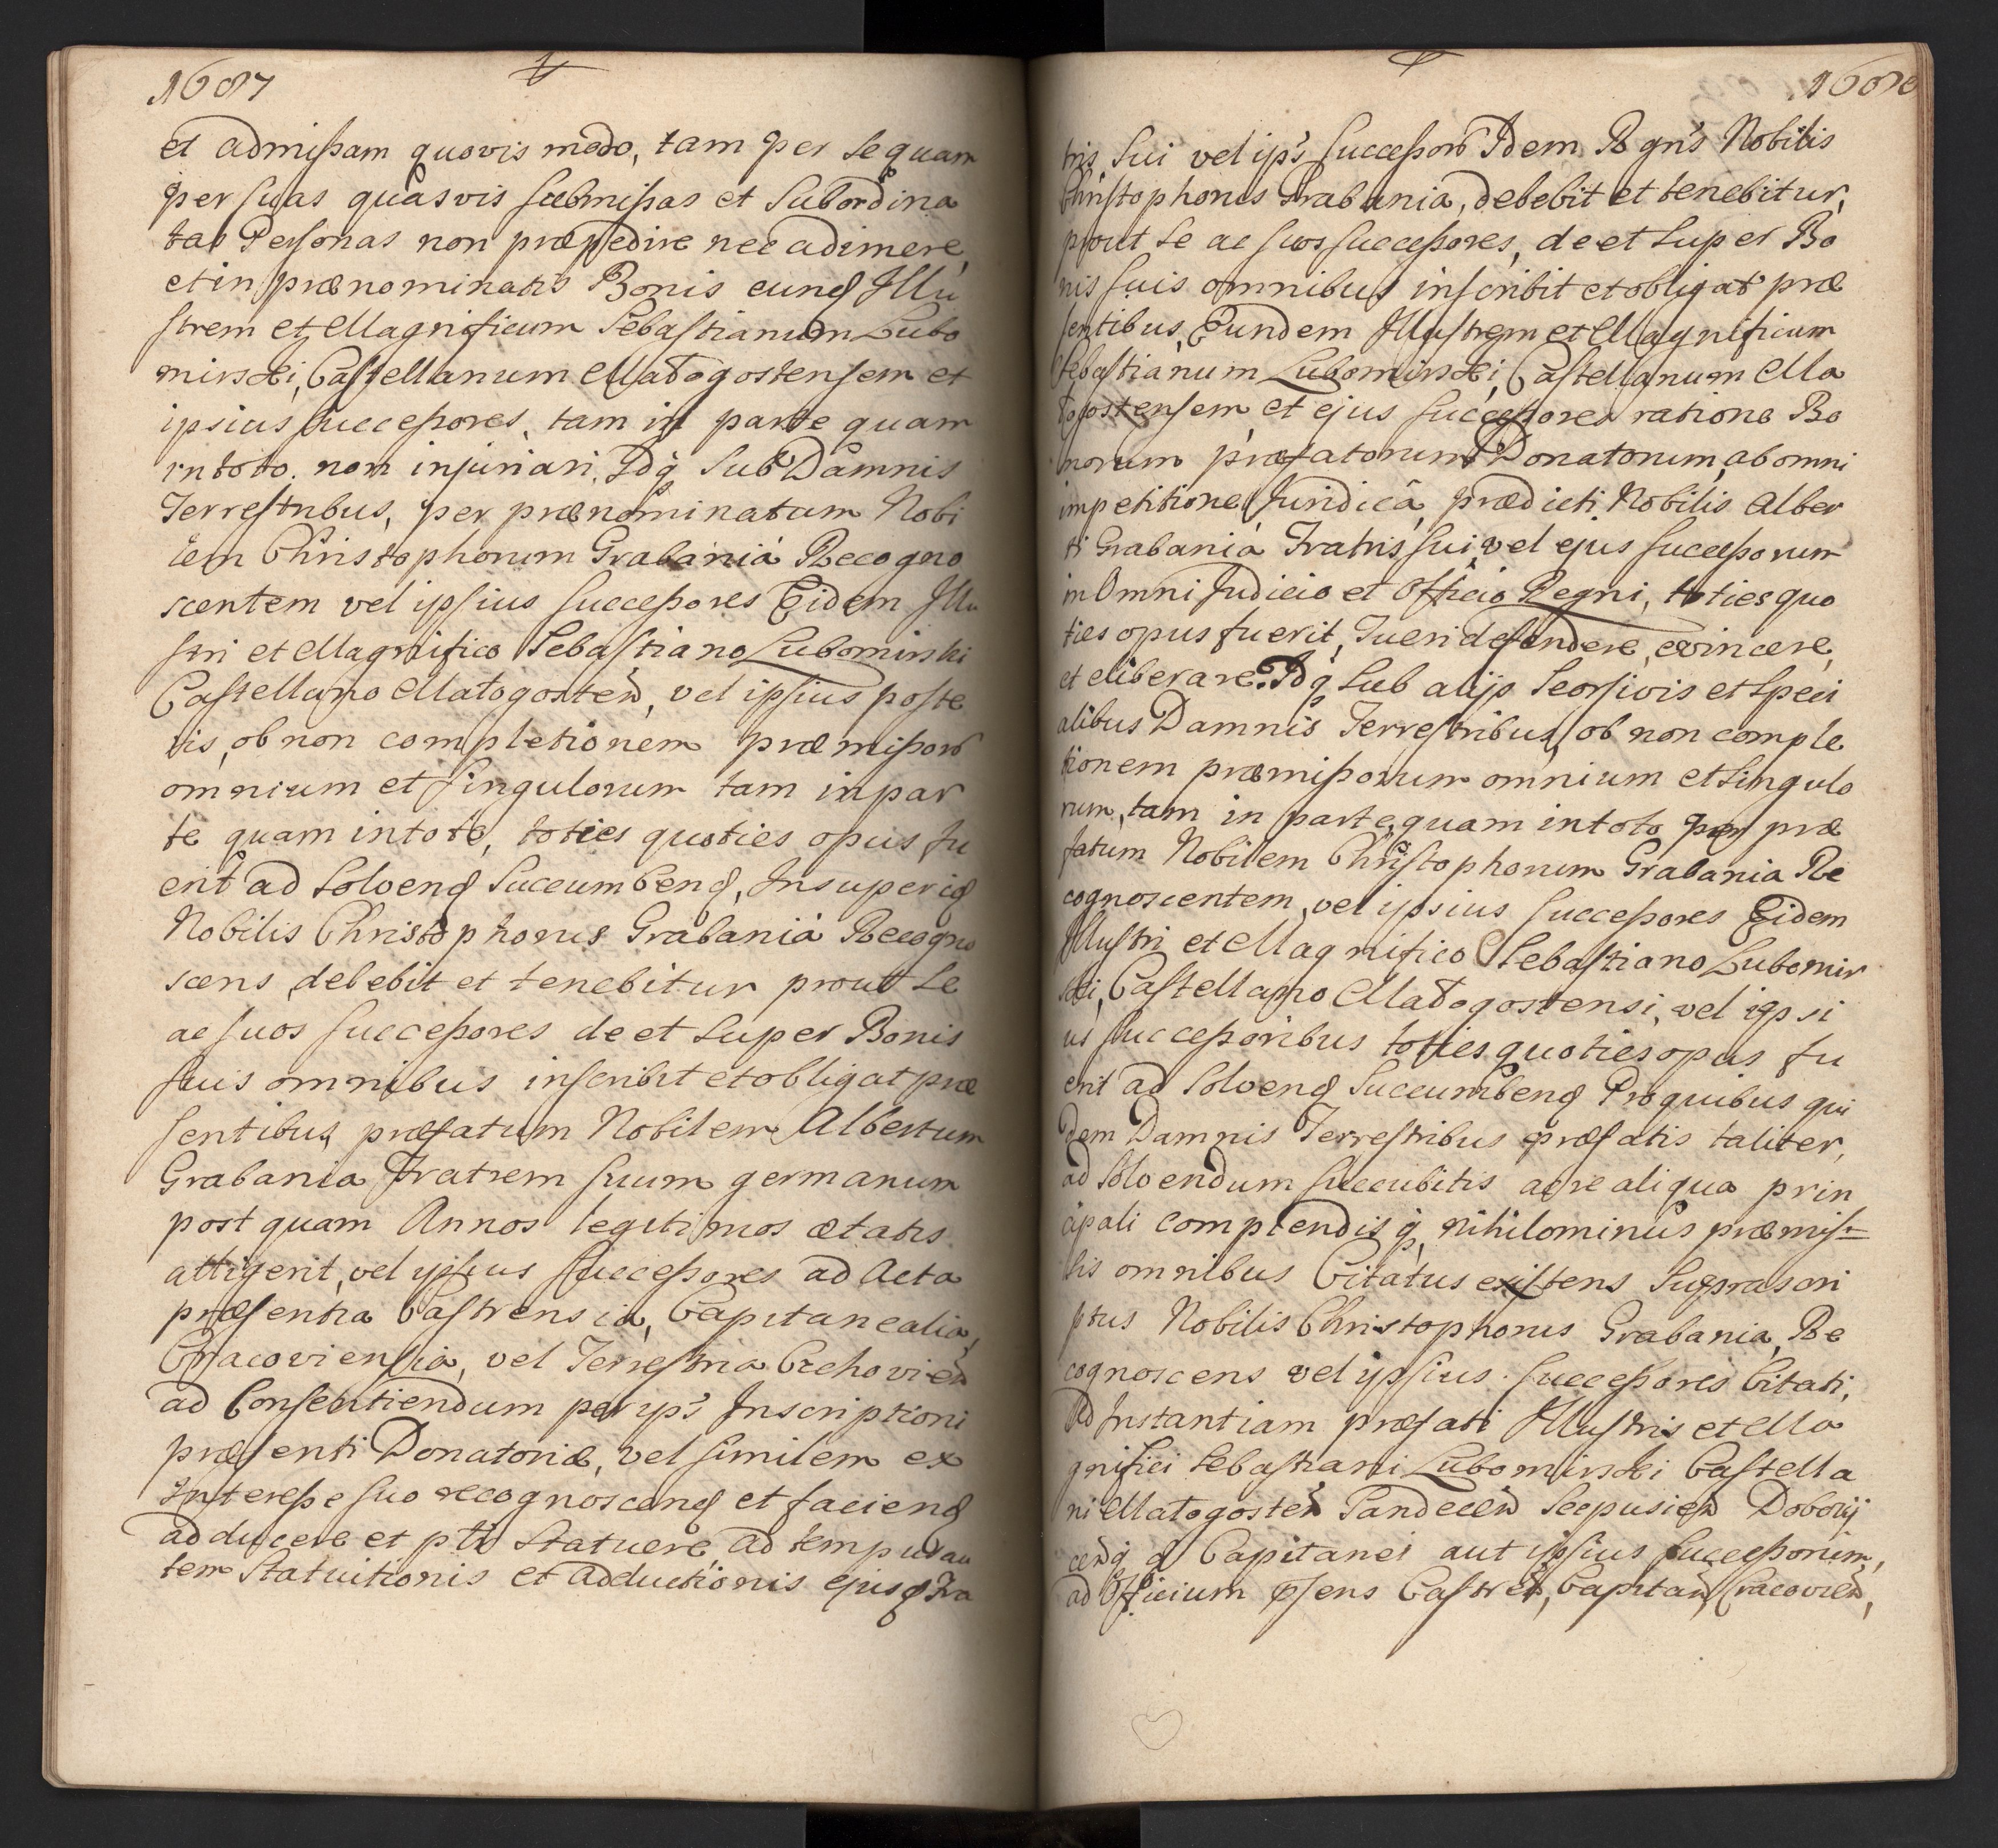 1687
et admißam quovis modo, tam per se quam
per suas quasvis submißas et Subordina
tas Personas non præpedire nec adimere,
et in prænominatis Bonis eund Illu
strem et Magnificum Sebastianum Lubo
mirski, Castellanum Małogostensem et
ipsius succeßores, tam in parte quam
in toto. non injuriari. Idq̨ Sub Damnis
Terrestribus, per prænominatum Nobi
lem Christophorum Grabania Recogno
scentem vel ipsius succeßores Eidem Illu
stri et Magnifico Sebastiano Lubomirski
Castellano Małogosten, vel ipsius poste
ris, ob non completionem præmißorō
omnium et singulorum tam in par
te quam in toto, toties quoties opus fu
erit ad Solvend Succumbend, Insuper id
Nobilis Christophorus Grabania Recogno
scens debebit et tenebitur prout Se
ac suos succeßores de et super Bonis
suis omnibus inscribit et obligat præ
sentibus, præfatum Nobilem Albertum
Grabania Fratrem suum germanum
post quam Annos legitimos ætatis
attigerit, vel ipsius succeßores ad Acta
præsentia Castrensia, Capitanealia,
Cracoviensia, vel Terrestria Czchovien
ad Consentiendum per ips Inscriptioni
præsenti Donatoriæ, vel similem ex
Intereße suo recognoscend et faciend
adducere et ptr Statuere, ad tempus au
tem Statuitionis et adductionis ejusd Fra
1688
tris Sui vel ips succeßorō Idem Rgns Nobilis
Christophorus Grabania, debebit et tenebitur,
prout Se ac suos succeßores, de et super Bo
nis suis omnibus inscribit et obligat præ
sentibus, Eundem Illustrem et Magnificum
Sebastianum Lubomirski, Castellanum Ma
łogostensem, et ejus succeßores ratione Bo
norum præfatorum Donatorum, ab omni
impetitione Juridicâ prædicti Nobilis Alber
ti Grabania Fratris sui, vel ejus succeßorum
in Omni Judicio et Officio Regni, toties quo
ties opus fuerit, Tueri defendere, evincere,
et eliberare. Idq̨ Sub alijs Seorsivis et Speci
alibus Damnis Terrestribus, ob non comple
tionem præmißorum omnium et Singulo
rum, tam in parte, quam in toto per præ
fatum Nobilem Christophorum Grabania Re
cognoscentem, vel ipsius succeßores Eidem
Illustri et Magnifico Sebastiano Lubomir
ski, Castellano Małogostensi, vel ipsi
us succeßoribus toties quoties opus fu
erit ad Solvend Succumbend Pro quibus qui
dem Damnis Terrestribus præfatis taliter,
ad Solvendum succubitis ac re aliqua prin
cipali complendis q̨, nihilominus præmis=
sis omnibus Citatus existens Suprascri
ptus Nobilis Christophorus Grabania, Re
cognoscens vel ipsius succeßores Citati,
Ad Instantiam præfati Illustris et Ma
gnifici Sebastiani Lubomirski Castella
ni Małogosten Sandecen Scepusien Dobczy
cenq̨ Capitanei aut ipsius succeßorum,
ad Officium psens Castren, Capitan Cracovien,